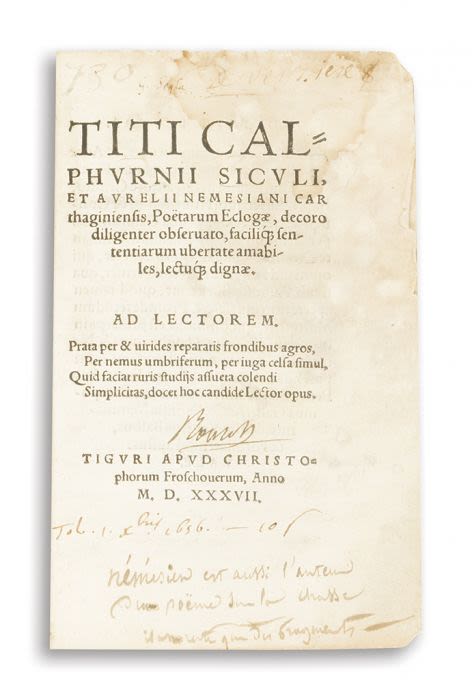 730
TITI CAL=
PHVRNII SICVLI,
ET AVRELII NEMESIANI CAR
thaginiensis, Poëtarum Eclogæ, decoro
diligenter obseruato, faciliq́; sen-
tentiarum ubertate amabi-
les, lectuq́; dignæ.
AD LECTOREM.
Prata per & uirides reparatis frondibus agros,
Per nemus umbriferum, per iuga celsa simul,
Quid faciat ruris studijs assueta colendi
Simplicitas, docet hoc candide Lector opus.
TIGVRI APVD CHRISTO=
phorum Froschouerum, Anno
M. D. XXXVII.
1636. — 10 ſ
némésien est aussi l'auteur
d'un poëme sur la chasse
il n'en reste que des fragments